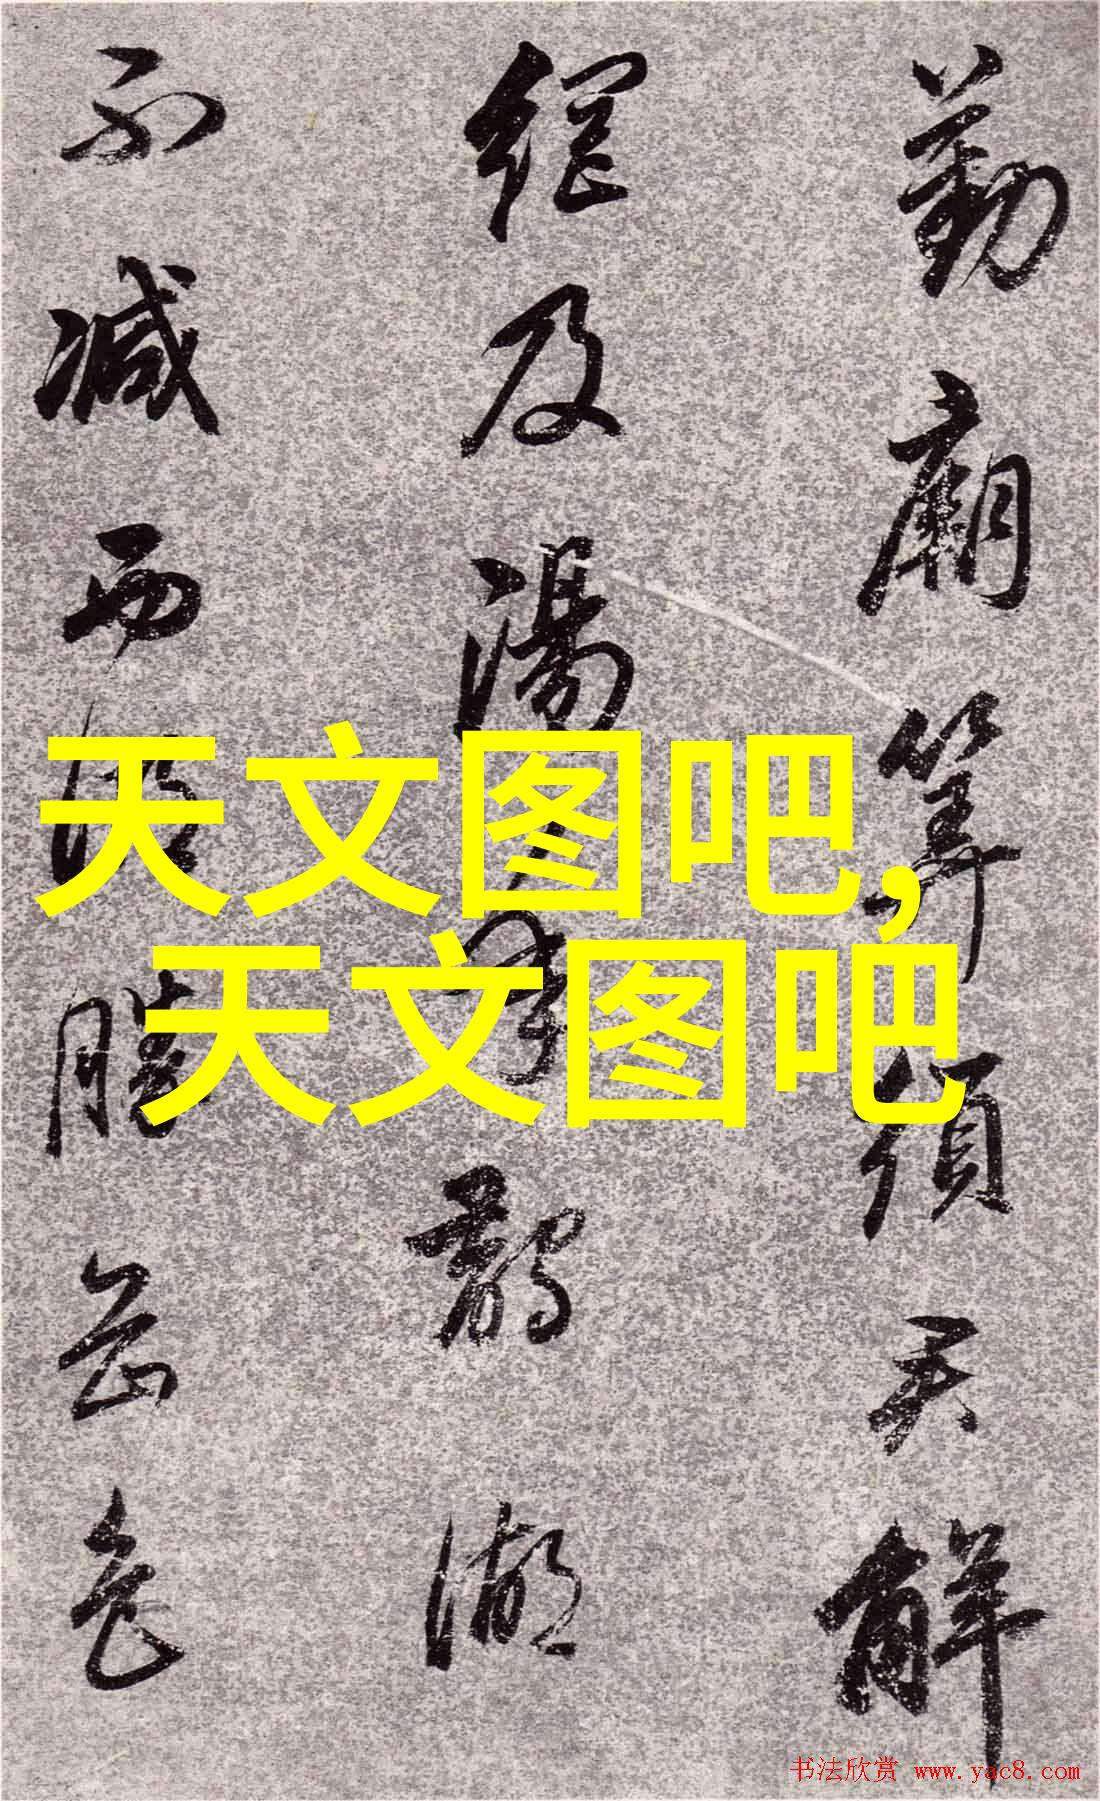 勤廟算須君解
網及湯年鵲湖
不減西湖勝名色
天文图吧,
天文图吧
书法欣赏 www.yac8.com